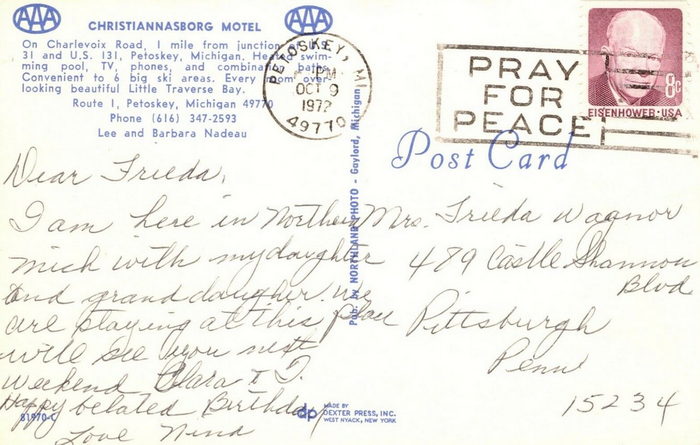 AAA AAA
CHRISTIANNASBORG MOTEL
On Charlevoix Road, 1 mile from junction
31 and U.S. 131, Petoskey, Michigan. Heated swim-
ming pool, TV, phones, and combination baths.
Convenient to 6 big ski areas. Every room over-
looking beautiful Little Traverse Bay.
Route 1, Petoskey, Michigan 49770
Phone (616) 347-2593
Lee and Barbara Nadeau
PETOSKEY, MI
PM
OCT 9
1972
49770
PRAY
FOR
PEACE
8c
EISENHOWER·USA
Post Card
Dear Frieda,
I am here in Northern
Mich with my daughter
and grand daugher. we
are staying at this place
will see you next
weekend Clara & J.
Happy belated Birthday
Love Nina
Pub. by NORTHLAND PHOTO - Gaylord, Michigan
Mrs. Frieda Wagnor
479 Castle Shannon
Blvd
Pittsburgh
Penn
15234
81970-C
dp MADE BY
DEXTER PRESS, INC.
WEST NYACK, NEW YORK